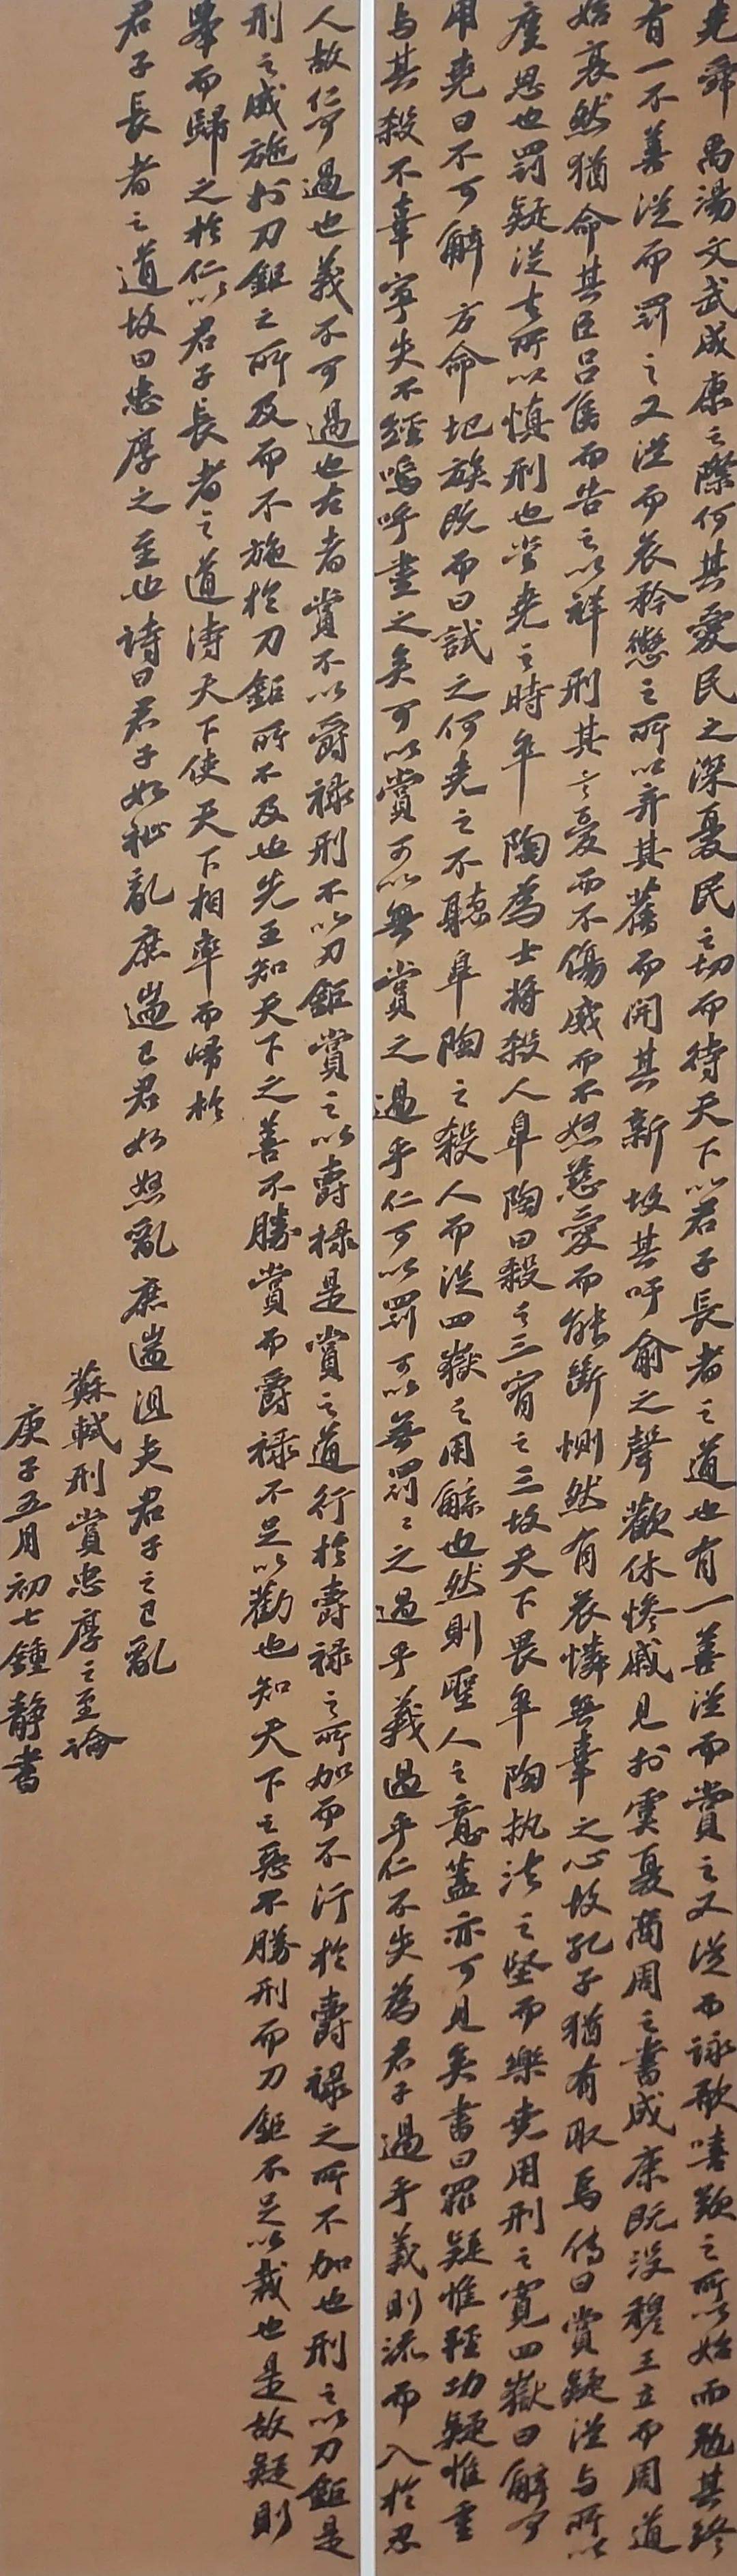 堯舜禹湯文武成康之際何其愛民之深憂民之切而待天下以君子長者之道也有一善從而賞之又從而詠歌嗟歎之所以始而勉其終
有一不善從而罰之又從而哀矜懲之所以弃其舊而開其新故其吁俞之聲歡休慘戚見於虞夏商周之書成康既沒穆王立而周道
始衰然猶命其臣呂侯而告之以祥刑其言憂而不傷威而不怒慈愛而能斷惻然有哀憐無辜之心故孔子猶有取焉傳曰賞疑從与所以
廣恩也罰疑從去所以慎刑也當堯之時皋陶為士將殺人皋陶曰殺之三宥之三故天下畏皋陶执法之堅而樂堯用刑之寬四嶽曰鯀可
用堯曰不可鯀方命圯族既而曰試之何堯之不聽皋陶之殺人而從四嶽之用鯀也然則聖人之意蓋亦可見矣書曰罪疑惟輕功疑惟重
与其殺不辜寧失不經嗚呼盡之矣可以賞可以無賞之過乎仁可以罰可以無罰之過乎義過乎仁不失為君子過乎義則流而入於忍
人故仁可過也義不可過也古者賞不以爵祿刑不以刀鉅賞之以爵祿是賞之道行於爵祿之所加而不行於爵祿之所不加也刑之以刀鉅是
刑之威施於刀鉅之所及而不施於刀鉅所不及也先王知天下之善不勝賞而爵祿不足以勸也知天下之惡不勝刑而刀鉅不足以裁也是故疑則
舉而歸之於仁以君子長者之道待天下使天下相率而歸於
君子長者之道故曰忠厚之至也詩曰君子如祉亂庶遄已君如怒亂庶遄沮夫君子之已亂
蘇軾刑賞忠厚之至論
庚子五月初七鍾靜書